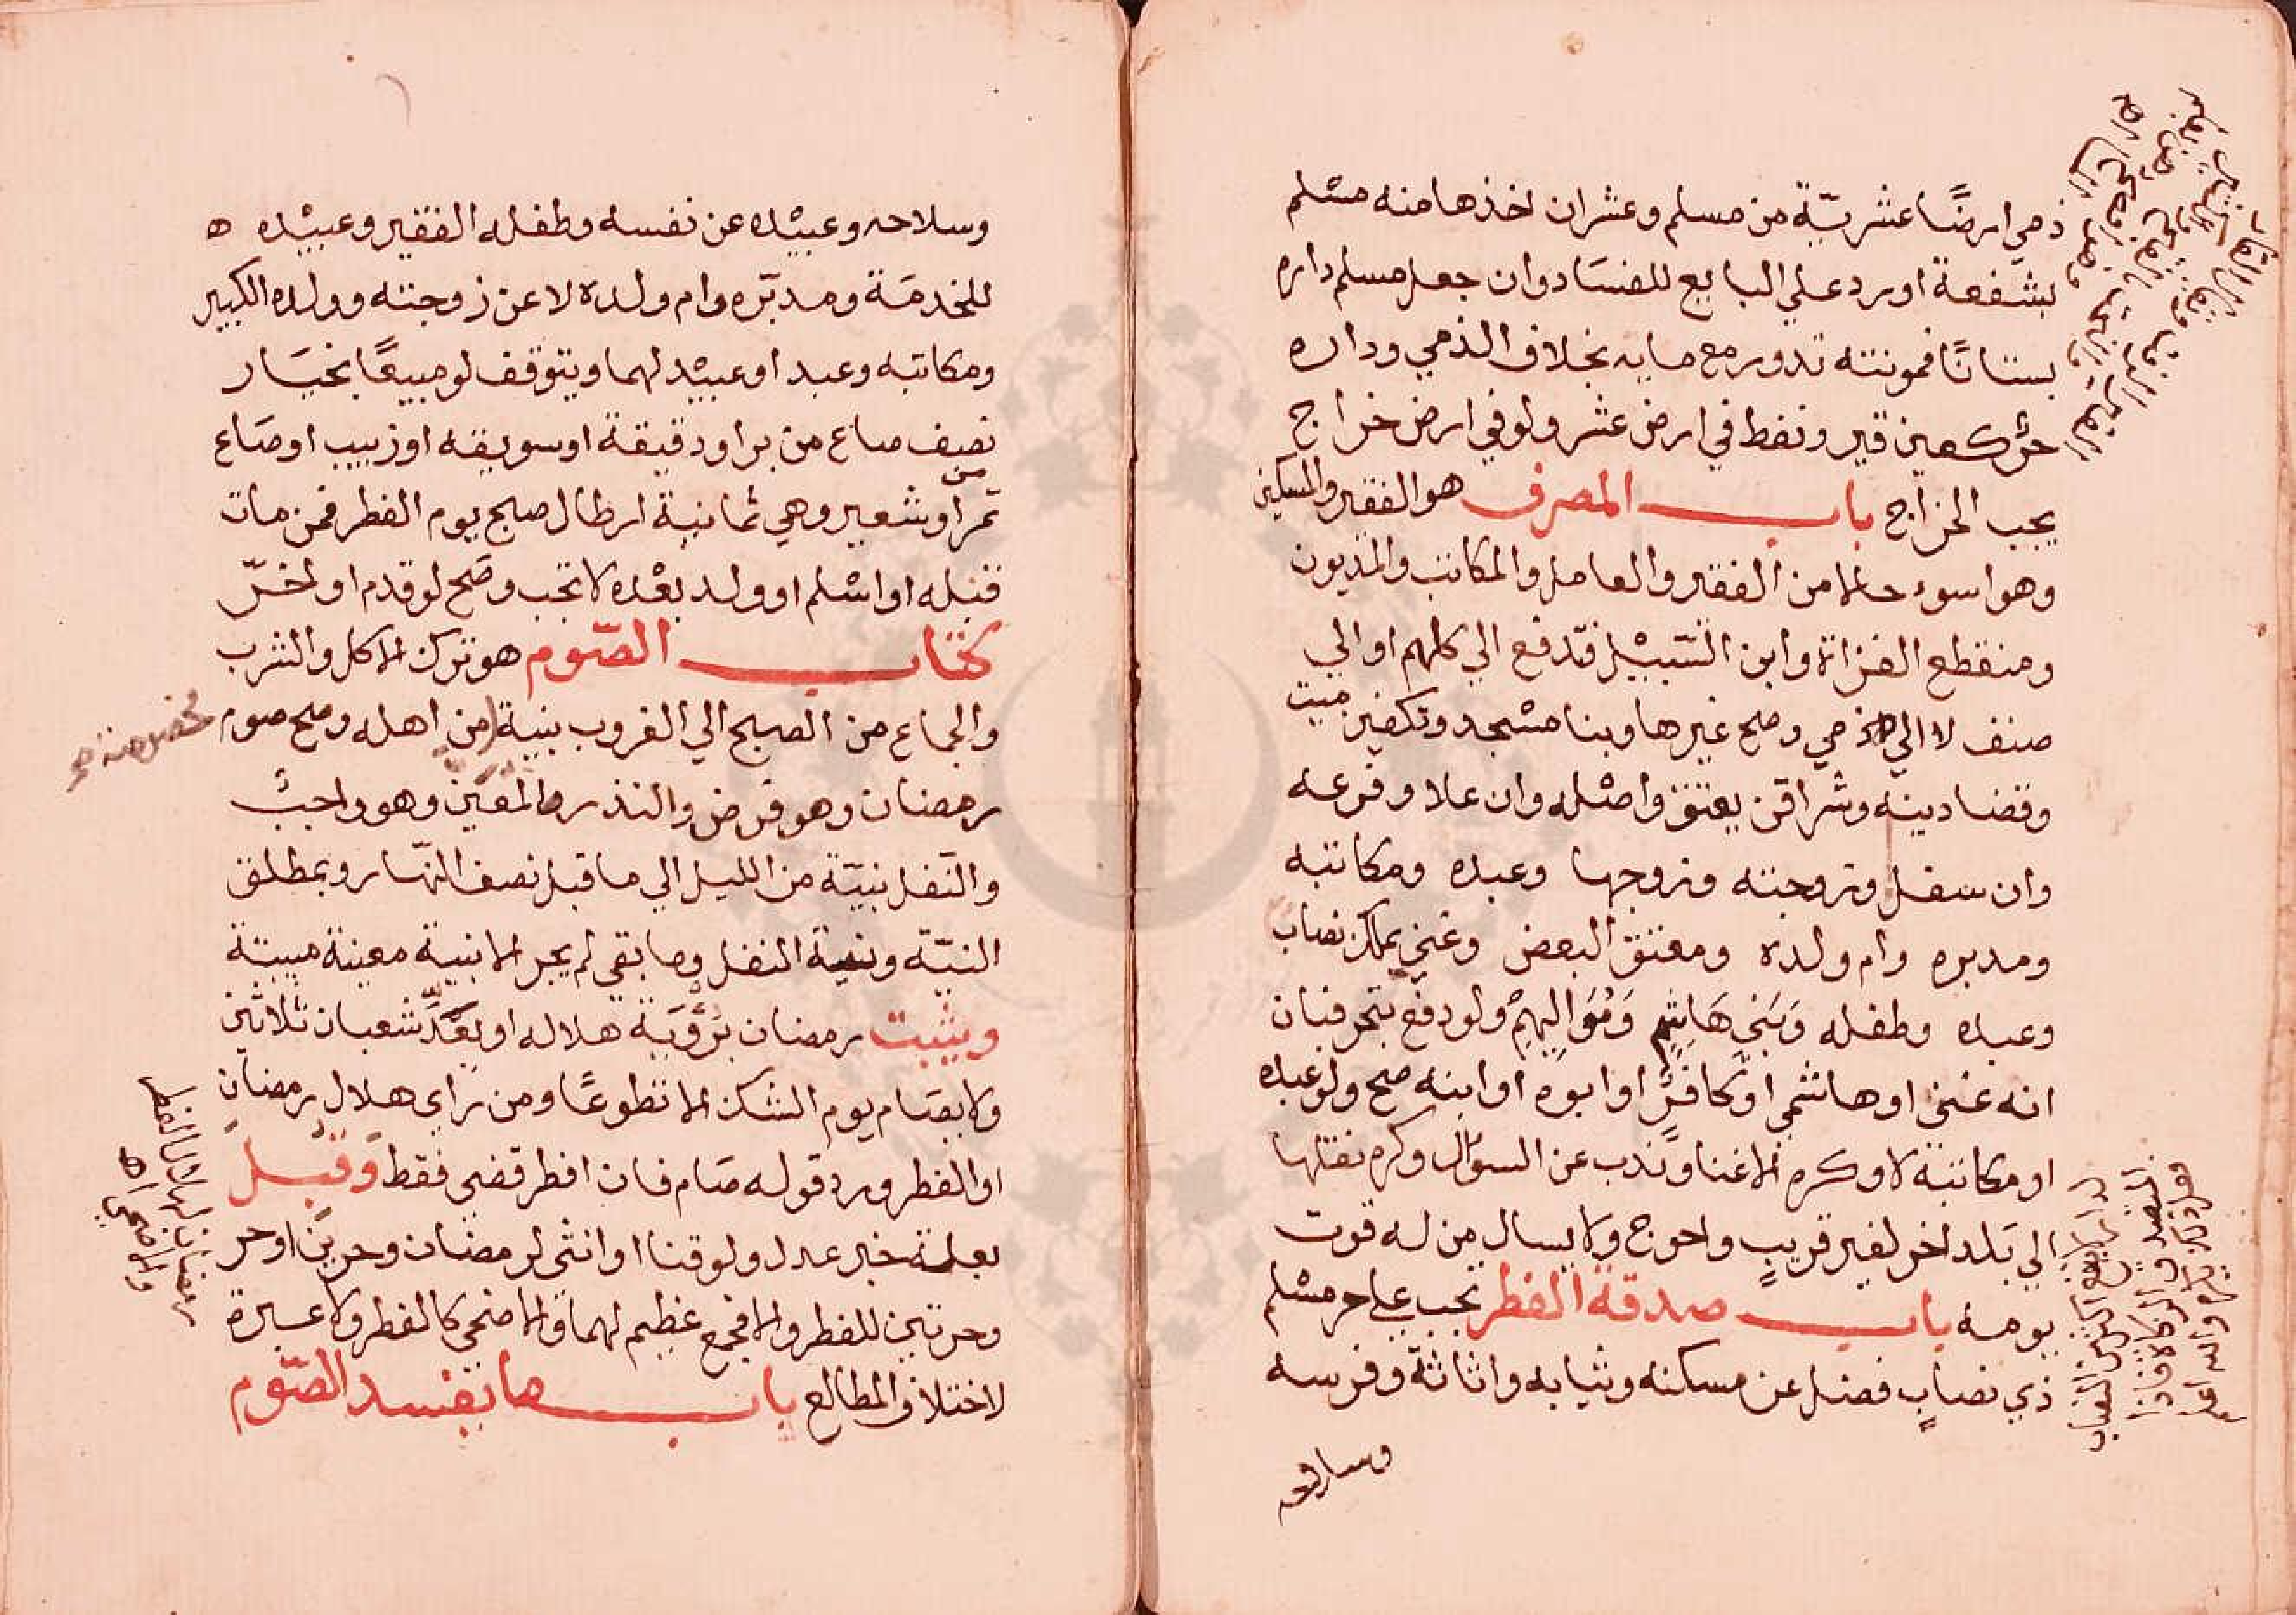 ذمي ارضًا عشريّة من مسلم وعشران اخذها منه مسلم
بشفعة اورد علي البايع للفسَاد وان جعل مسلم داره
بستانًا فمونته تدور مع مايه بخلاف الذمي وداره
حرّ كعين قير ونفط في ارض عشر ولو في ارض خراج
يجب الخراج باب المصرف هو الفقير والمسكين
وهو اسوء حالا من الفقير والعامل والمكاتب والمديون
ومنقطع الغزاة وابن السّبيل فتدفع الي كلهم او الي
صنف لا الي ذمي وصح غيرها وبنا مسجد وتكفين ميت
وقضا دينه وشرا قن يعتق واصله وان علا وفرعه
وان سفل وزوجته وزوجها وعبده ومكاتبه
ومدبره وام ولده ومعتق البعض وغني يملك نصاب
وعبده وطفله وَبَني هَاشِمٍ وَمُوَاليهِمْ ولو دفع بتحر فبان
انه غني او هاشمي او كافرٌ او ابوه او ابنه صح ولو عبده
او مكاتبة لا وكره الاغنا وندب عن السؤال وكره نقلها
الي بَلد اخر لغير قريبٍ واحوج ولا يسال من له قوت
يومه باب صدقة الفطر تجب علي حر مسلم
ذي نصابٍ فضل عن مسكنه وثيابه واثاثة وفرسه
وسلاحه
وسلاحه وعبيْده عن نفسه وطفله الفقير وعبيْده ه
للخدمَة ومدبّره وام ولده لا عن زوجته وولده الكبير
ومكاتبه وعبد او عبيْد لهما ويتوقف لو مبيعًا بخيَار
نصف صاع من بر او دقيقة او سويقه او زبيب او صَاع
من
تمر او شعير وهي ثمانية ارطال صبح يوم الفطر فمن مات
قبله او اسْلم او ولد بعْده لا تجب وصَح لو قدم او اخرّ
كتاب الصّوم هو ترك الاكل والشرب
والجماع من الصبح الي الغروب بنية من اهله وصح صوم
رمضان وهو فرض والنذر المعيّن وهو واجبٌ
والنّفل بنيّة من الليل الي ما قبل نصف النّهار وبمطلق
النيّة ونية النفل وما بقي لم يجر الا بنية معينة مبيتة
ويثبت رمضان برُؤيَة هلاله او بعَدِّ شعبان ثلاثين
ولا يصَام يوم الشك الا تطوعًا ومن راي هلال رمضان
او الفطر ورد قوله صَام فان افطر قضي فقط وَقبل
بعلة خبر عدل ولو قنا او انثى لرمضان وحرين او حر
وحرتين للفطر والا فجمع عظيم لهما والاضحي كالفطر ولا عبرة
لاختلاف المطالع باب ما يفسد الصّوم